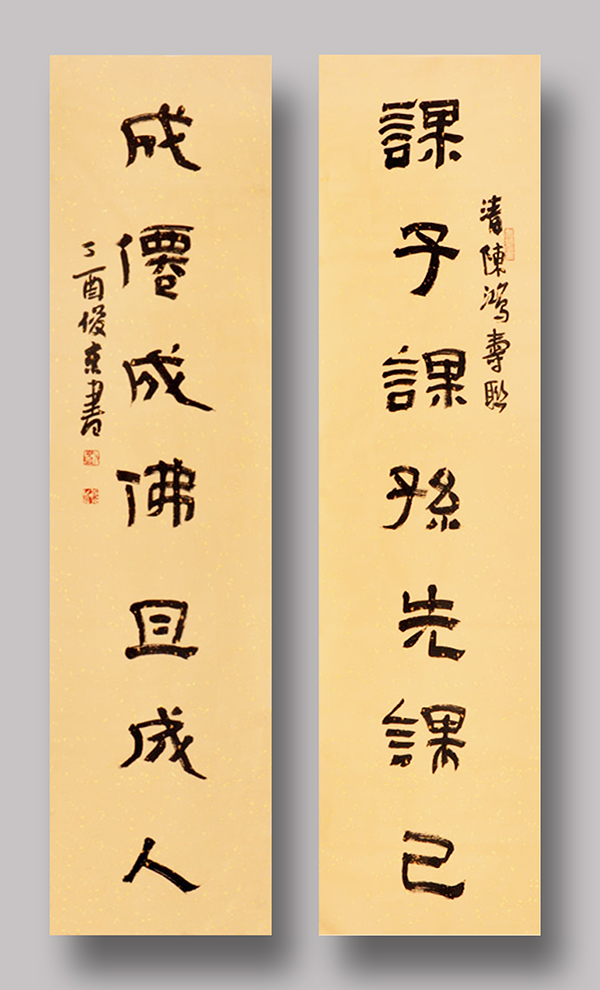 課子課孫先課己
清陳鴻壽聯
成僊成佛且成人
丁酉俊東書